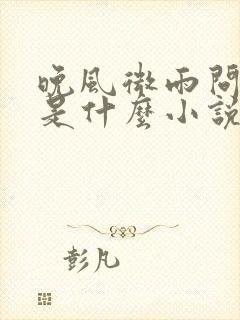 晚風微雨問
是什麼小說
彭凡